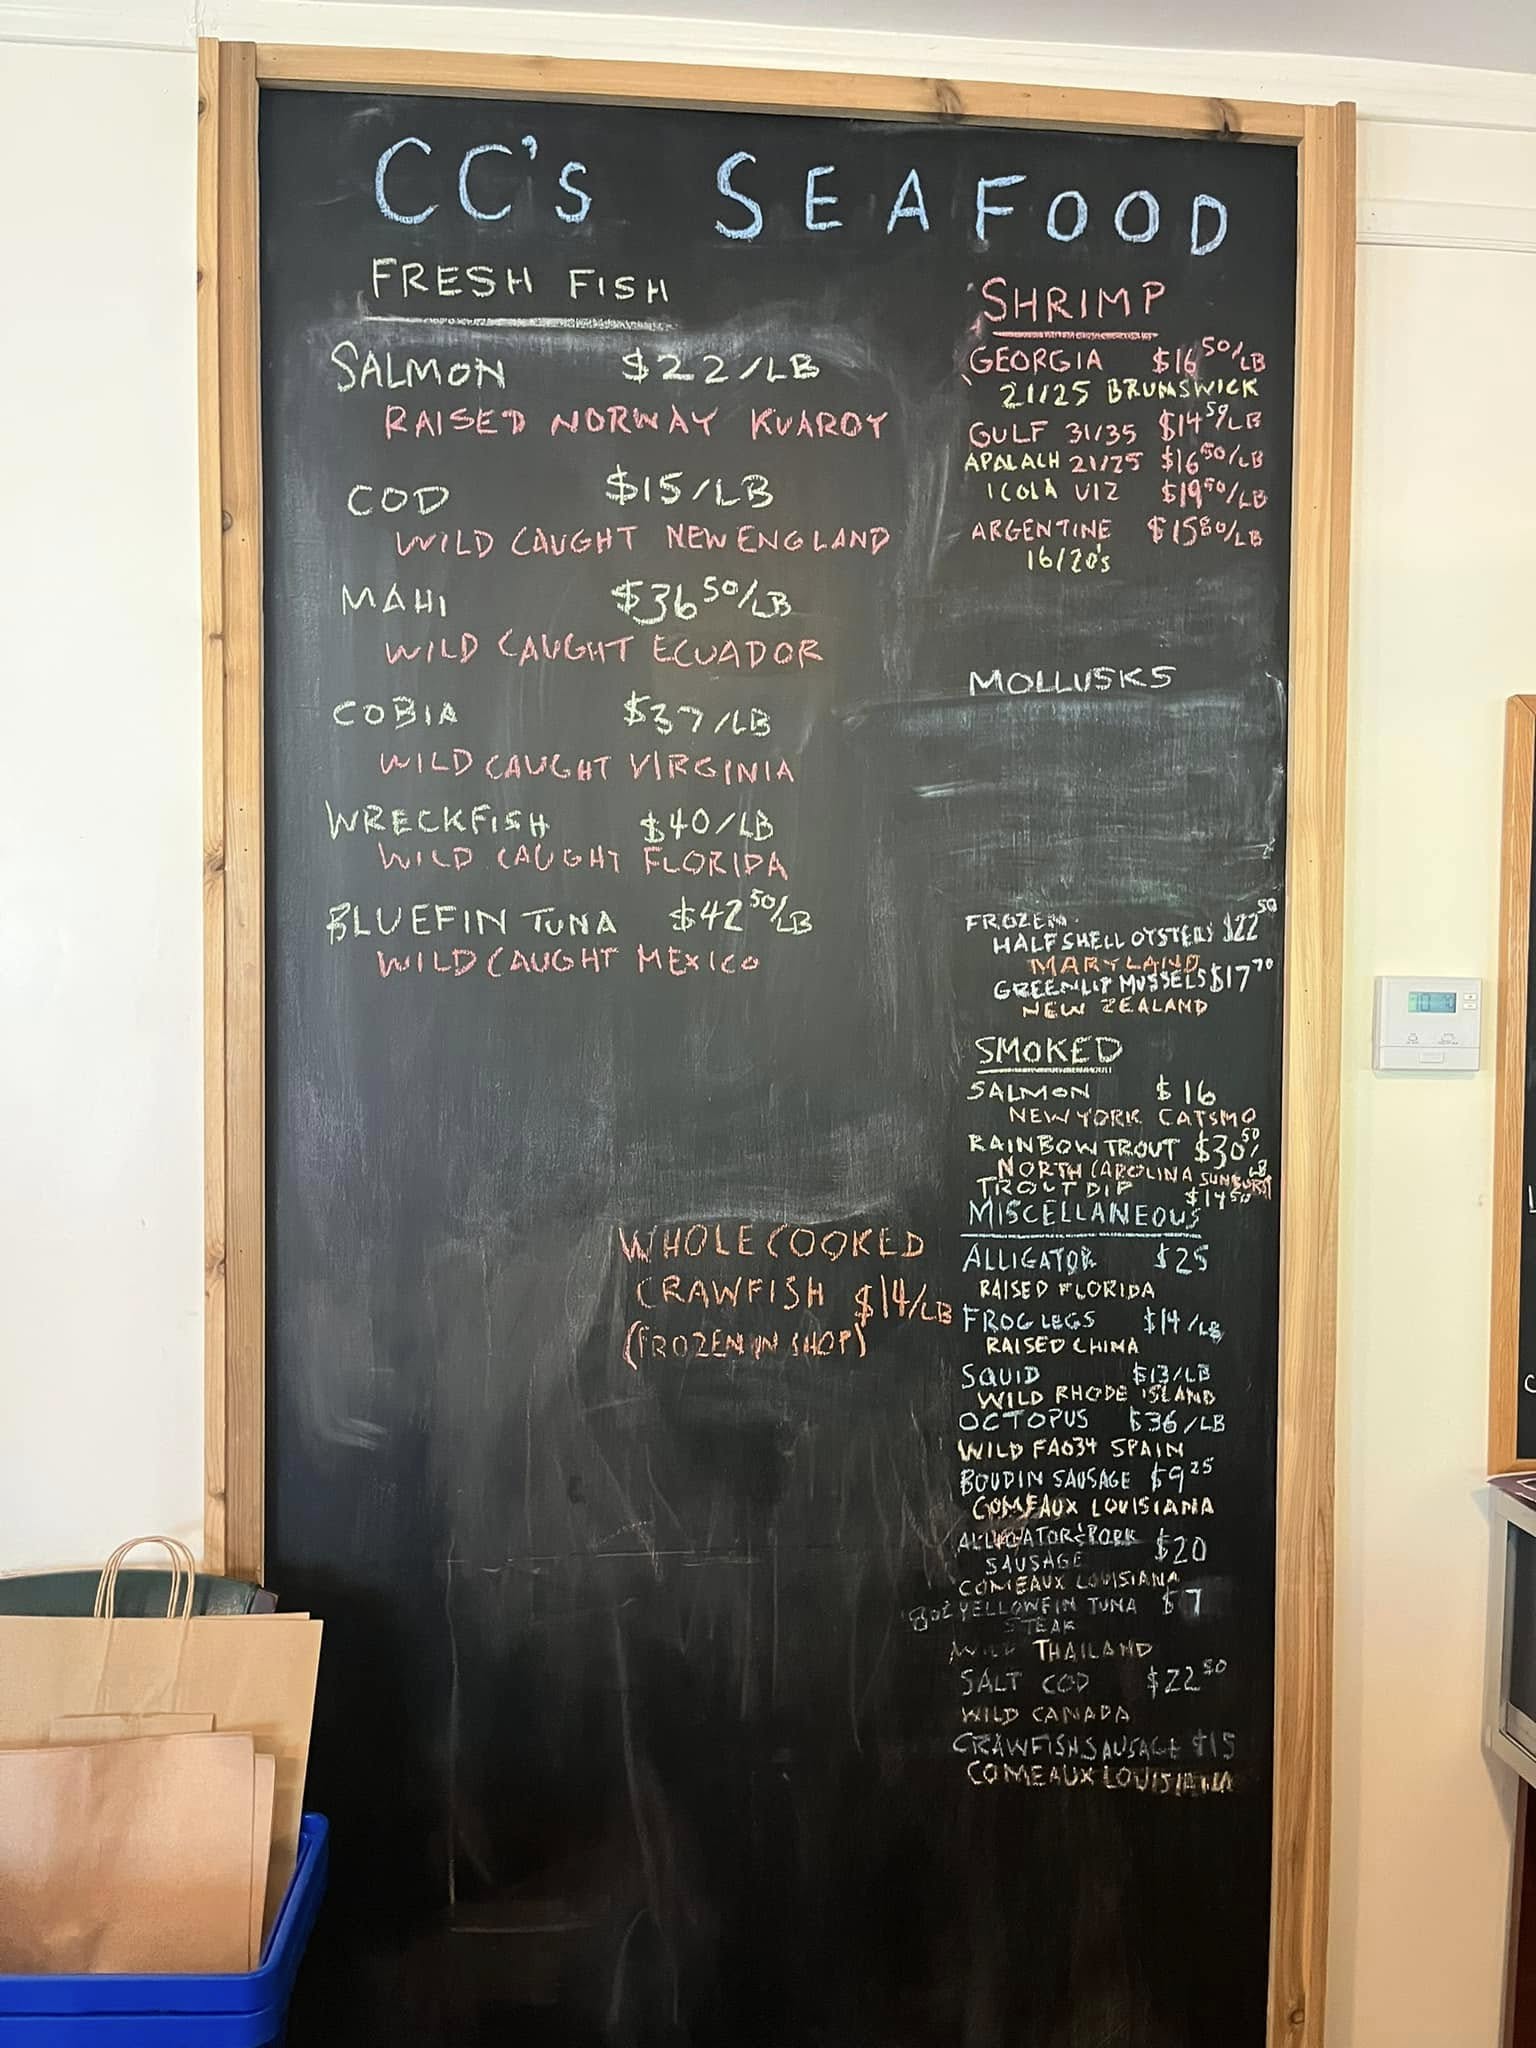 CC's SEAFOOD
FRESH FISH
SALMON $22/LB
RAISED NORWAY KVAROY
COD $15/LB
WILD CAUGHT NEW ENGLAND
MAHI $36 50/LB
WILD CAUGHT ECUADOR
COBIA $37/LB
WILD CAUGHT VIRGINIA
WRECKFISH $40/LB
WILD CAUGHT FLORIDA
BLUEFIN TUNA $42 50/LB
WILD CAUGHT MEXICO
WHOLE COOKED
CRAWFISH $14/LB
(FROZEN IN SHOP)
SHRIMP
GEORGIA $16 50/LB
21/25 BRUNSWICK
GULF 31/35 $14 50/LB
APALACH 21/25 $16 50/LB
ICOLA U12 $19 50/LB
ARGENTINE $15 80/LB
16/20's
MOLLUSKS
FROZEN
HALF SHELL OYSTERS $22 50
MARYLAND
GREENLIP MUSSELS $17 70
NEW ZEALAND
SMOKED
SALMON $16
NEW YORK CATSMO
RAINBOW TROUT $30 50/LB
NORTH CAROLINA SUNBURST
TROUT DIP $14 50
MISCELLANEOUS
ALLIGATOR $25
RAISED FLORIDA
FROG LEGS $14/LB
RAISED CHINA
SQUID $13/LB
WILD RHODE ISLAND
OCTOPUS $36/LB
WILD FAO34 SPAIN
BOUDIN SAUSAGE $9 25
COMEAUX LOUISIANA
ALLIGATOR & PORK $20
SAUSAGE
COMEAUX LOUISIANA
8oz YELLOWFIN TUNA $7
STEAK
WILD THAILAND
SALT COD $22 50
WILD CANADA
CRAWFISH SAUSAGE $15
COMEAUX LOUISIANA